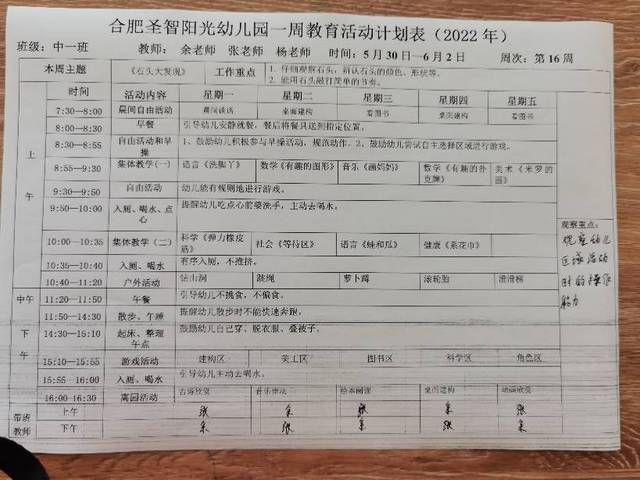 合肥圣智阳光幼儿园一周教育活动计划表（2022 年）
班级：中一班 教师： 余老师 张老师 杨老师 时间：5 月 30 日—6 月 2 日 周次：第 16 周
本周主题 《石头大发现》 工作重点 1. 仔细观察石头，辨认石头的颜色、形状等。
2. 能用石头敲打简单的节奏。
时间 活动内容 星期一 星期二 星期三 星期四 星期五
上午
7:30—8:00 晨间自由活动 晨间谈话 桌面建构 看图书 桌面建构 看图书
8:00—8:30 早餐 引导幼儿安静就餐，餐后将餐具送到指定位置。
8:30—8:55 自由活动和早操 1、鼓励幼儿积极参与早操活动，规范动作。2、鼓励幼儿尝试自主选择区域进行游戏。
8:55—9:30 集体教学（一） 语言《洗脚丫》 数学《有趣的图形》 音乐《画妈妈》 数学《有趣的扑克牌》 美术《米罗的画》
9:30—9:50 自由活动 幼儿能有规则地进行游戏。
9:50—10:00 入厕、喝水、点心 提醒幼儿吃点心前要洗手，主动去喝水。
10:00—10:35 集体教学（二） 科学《弹力橡皮筋》 社会《等待区》 语言《蛙和瓜》 健康《系花巾》
10:35—10:40 入厕、喝水 有序入厕，不推挤。
10:40—11:20 户外活动 钻山洞 跳绳 萝卜蹲 滚轮胎 滑滑梯
中午
11:20—11:50 午餐 引导幼儿不挑食，不偏食。
11:50—14:30 散步、午睡 提醒幼儿散步时不能快速奔跑。
下午
14:30—15:10 起床、整理午点 鼓励幼儿自己穿、脱衣服、叠被子。
15:10—15:55 游戏活动 建构区 美工区 图书区 科学区 角色区
15:55—16:00 入厕、喝水 引导幼儿主动去喝水。
16:00—16:30 离园活动 古诗欣赏 音乐律动 绘本阅读 桌面建构 动画欣赏
带班教师 上午 张 余 张 余 张
下午 余 张 余 张 余
观察重点：
观察幼儿
区域活动
时的操作
能力